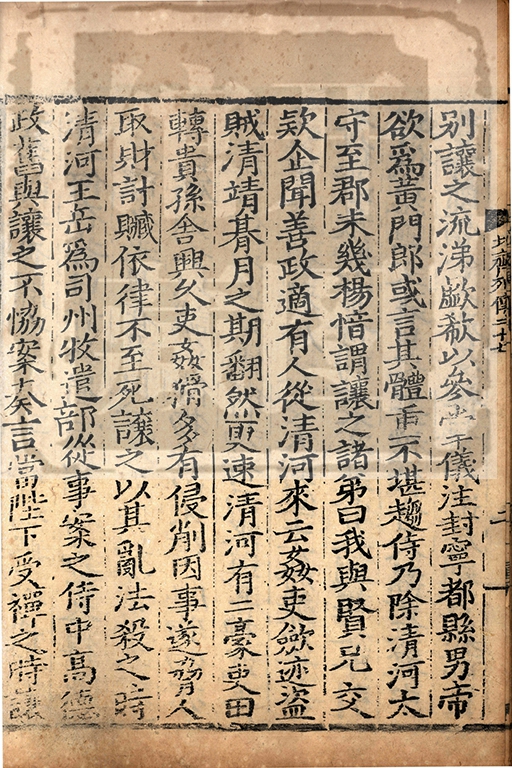 別讓之流涕歔欷以參掌儀注封寧都縣男帝
欲為黃門郎或言其體重不堪趨侍乃除清河太
守至郡未幾楊愔謂讓之諸弟曰我與賢兄交
欵企聞善政適有人從清河來云姦吏歛迹盜
賊清靖朞月之期翻然更速清河有二豪吏田
轉貴孫舍興久吏姦猾多有侵削因事遂脅人
取財計贓依律不至死讓之以其亂法殺之時
清河王岳為司州牧遣部從事案之侍中高德
政舊與讓之不恊案奏言當陛下受禪之時讓
北齊列傳二十七
二